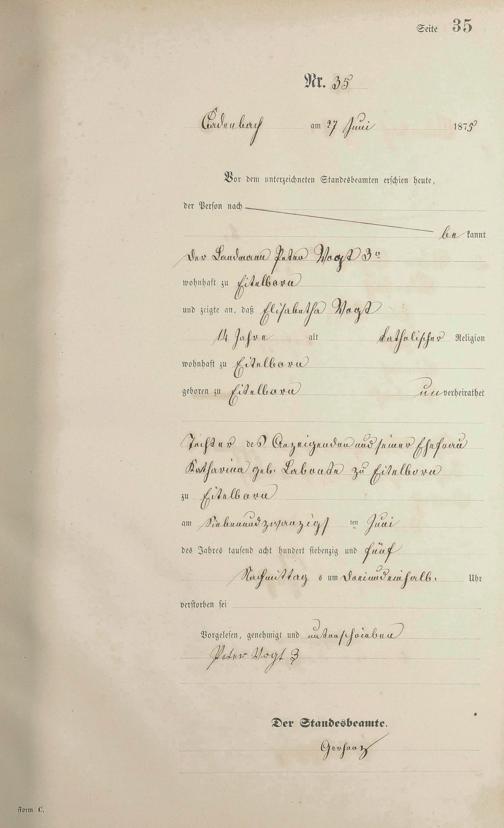 Seite 35
Nr. 35
Cadenbach am 27 Juni 1875
Vor dem unterzeichneten Standesbeamten erschien heute,
der Person nach
be kannt
der Landmann Peter Vogt 3r
wohnhaft zu Eitelborn
und zeigte an, daß Elisabetha Vogt
14 Jahre alt katholischer Religion
wohnhaft zu Eitelborn
geboren zu Eitelborn unverheirathet
Tochter des Anzeigenden und seiner Ehefrau
Katharina geb. Labonte zu Eitelborn
zu Eitelborn
am Siebenundzwanzigs ten Juni
des Jahres tausend acht hundert siebenzig und fünf
Nachmittag s um Dreiundeinhalb. Uhr
verstorben sei
Vorgelesen, genehmigt und unterschrieben
Peter Vogt 3
Der Standesbeamte.
Gerharz
Form C.